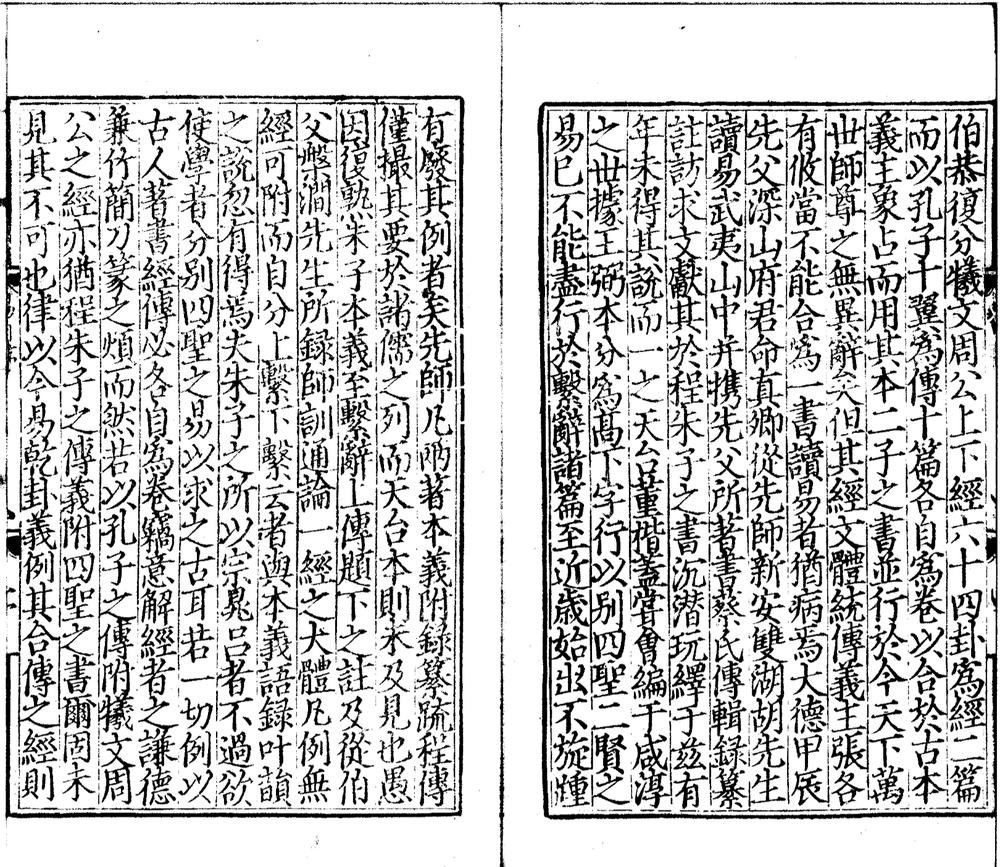 伯恭復分犧文周公上下經六十四卦爲經二篇
而以孔子十翼爲傳十篇各自爲卷以合於古本
義主象占而用其本二子之書並行於今天下萬
世師尊之無異辭矣但其經文體統傳義主張各
有攸當不能合爲一書讀易者猶病焉大德甲辰
先父深山府君命真卿從先師新安雙湖胡先生
讀易武夷山中并携先父所著書蔡氏傳輯録纂
註訪求文獻其於程朱子之書沉潜玩繹于兹有
年未得其説而一之天台董楷蓋嘗會編于咸淳
之世據王弼本分爲高下字行以别四聖二賢之
易已不能盡行於繫辭諸篇至近歳始出不旋踵
有廢其例者矣先師凡兩著本義附録纂䟽程傳
僅撮其要於諸儒之列而天台本則未及見也愚
因復熟朱子本義至繫辭上傳題下之註及從伯
父槃澗先生所録師訓通論一經之大體凡例無
經可附而自分上繫下繫云者與本義語録叶韻
之説忽有得焉夫朱子之所以宗晁吕者不過欲
使學者分别四聖之易以求之古耳若一切例以
古人著書經傳必各自爲卷竊意解經者之謙德
兼竹簡刀篆之煩而然若以孔子之傳附犧文周
公之經亦猶程朱子之傳義附四聖之書爾固未
見其不可也律以今易乾卦義例其合傳之經則